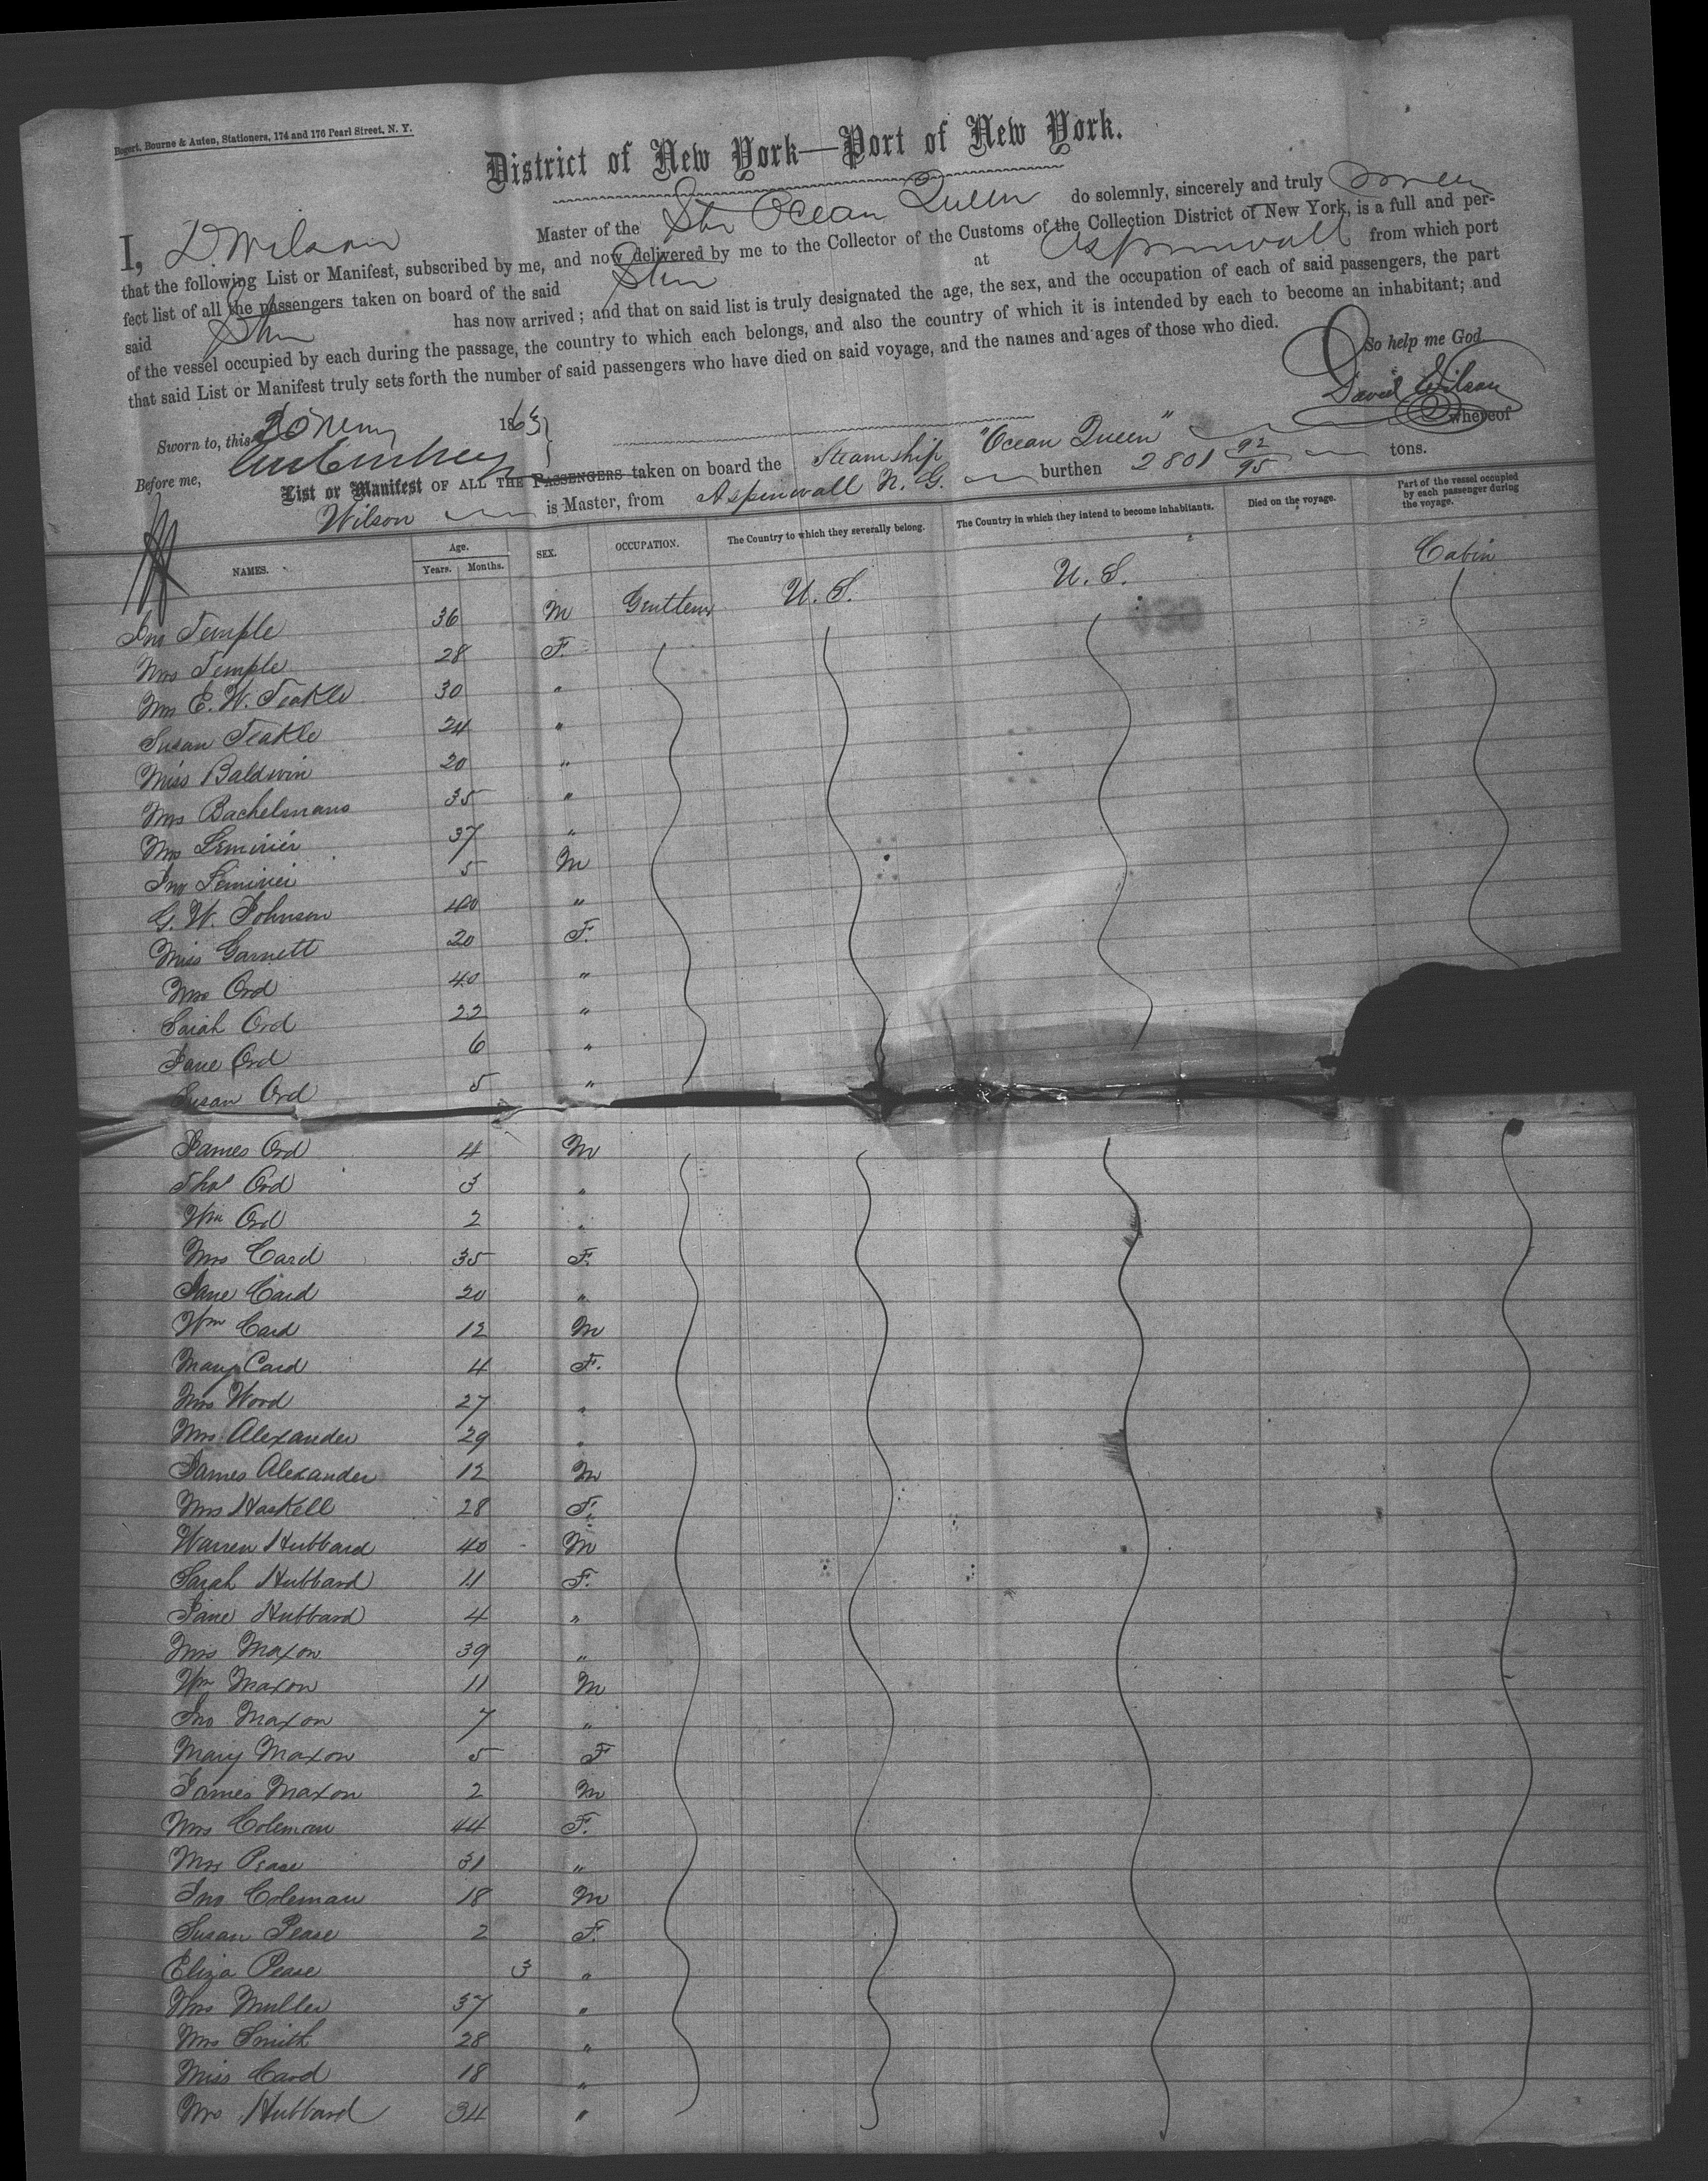 Bogert, Bourne & Auten, Stationers, 174 and 176 Pearl Street, N. Y.
District of New York—Port of New York.
I, D. Wilson Master of the Str Ocean Queen do solemnly, sincerely and truly swear
that the following List or Manifest, subscribed by me, and now delivered by me to the Collector of the Customs of the Collection District of New York, is a full and per-
fect list of all the passengers taken on board of the said Str at Aspinwall from which port
said Str has now arrived; and that on said list is truly designated the age, the sex, and the occupation of each of said passengers, the part
of the vessel occupied by each during the passage, the country to which each belongs, and also the country of which it is intended by each to become an inhabitant; and
that said List or Manifest truly sets forth the number of said passengers who have died on said voyage, and the names and ages of those who died.
So help me God.
David Wilson
Sworn to, this 1863
Before me,
List or Manifest OF ALL THE PASSENGERS taken on board the Steamship "Ocean Queen" whereof
Wilson is Master, from Aspinwall N. G. burthen 2801 92/95 tons.
NAMES. Age. Years. Months. SEX. OCCUPATION. The Country to which they severally belong. The Country in which they intend to become inhabitants. Died on the voyage. Part of the vessel occupied by each passenger during the voyage.
Jno Temple 36 M U. S. U. S. Cabin
Mrs Temple 28 F.
Mrs E. W. Teakle 30 "
Susan Teakle 24 "
Miss Baldwin 20 "
Mrs Bachelmans 35 "
Mrs 37 "
Jno 5 M
G. W. Johnson 40 "
Miss Garnett 20 F.
Mrs Ord 40 "
Sarah Ord 22 "
Jane Ord 6 "
Susan Ord 5 "
James Ord 4 M
Thos Ord 3 "
Wm Ord 2 "
Mrs Card 35 F.
Jane Card 20 "
Wm Card 12 M
Mary Card 4 F.
Mrs Wood 27 "
Mrs Alexander 29 "
James Alexander 12 M
Mrs Haskell 28 F.
Warren Hubbard 40 M
Sarah Hubbard 11 F.
Jane Hubbard 4 "
Mrs Maxon 39 "
Wm Maxon 11 M
Jno Maxon 7 "
Mary Maxon 5 F
James Maxon 2 M
Mrs Coleman 44 F.
Mrs Pease 31 "
Jno Coleman 18 M
Susan Pease 2 F.
Eliza Pease 3 "
Mrs Muller 37 "
Mrs Smith 28 "
Miss Card 18 "
Mrs Hubbard 34 "